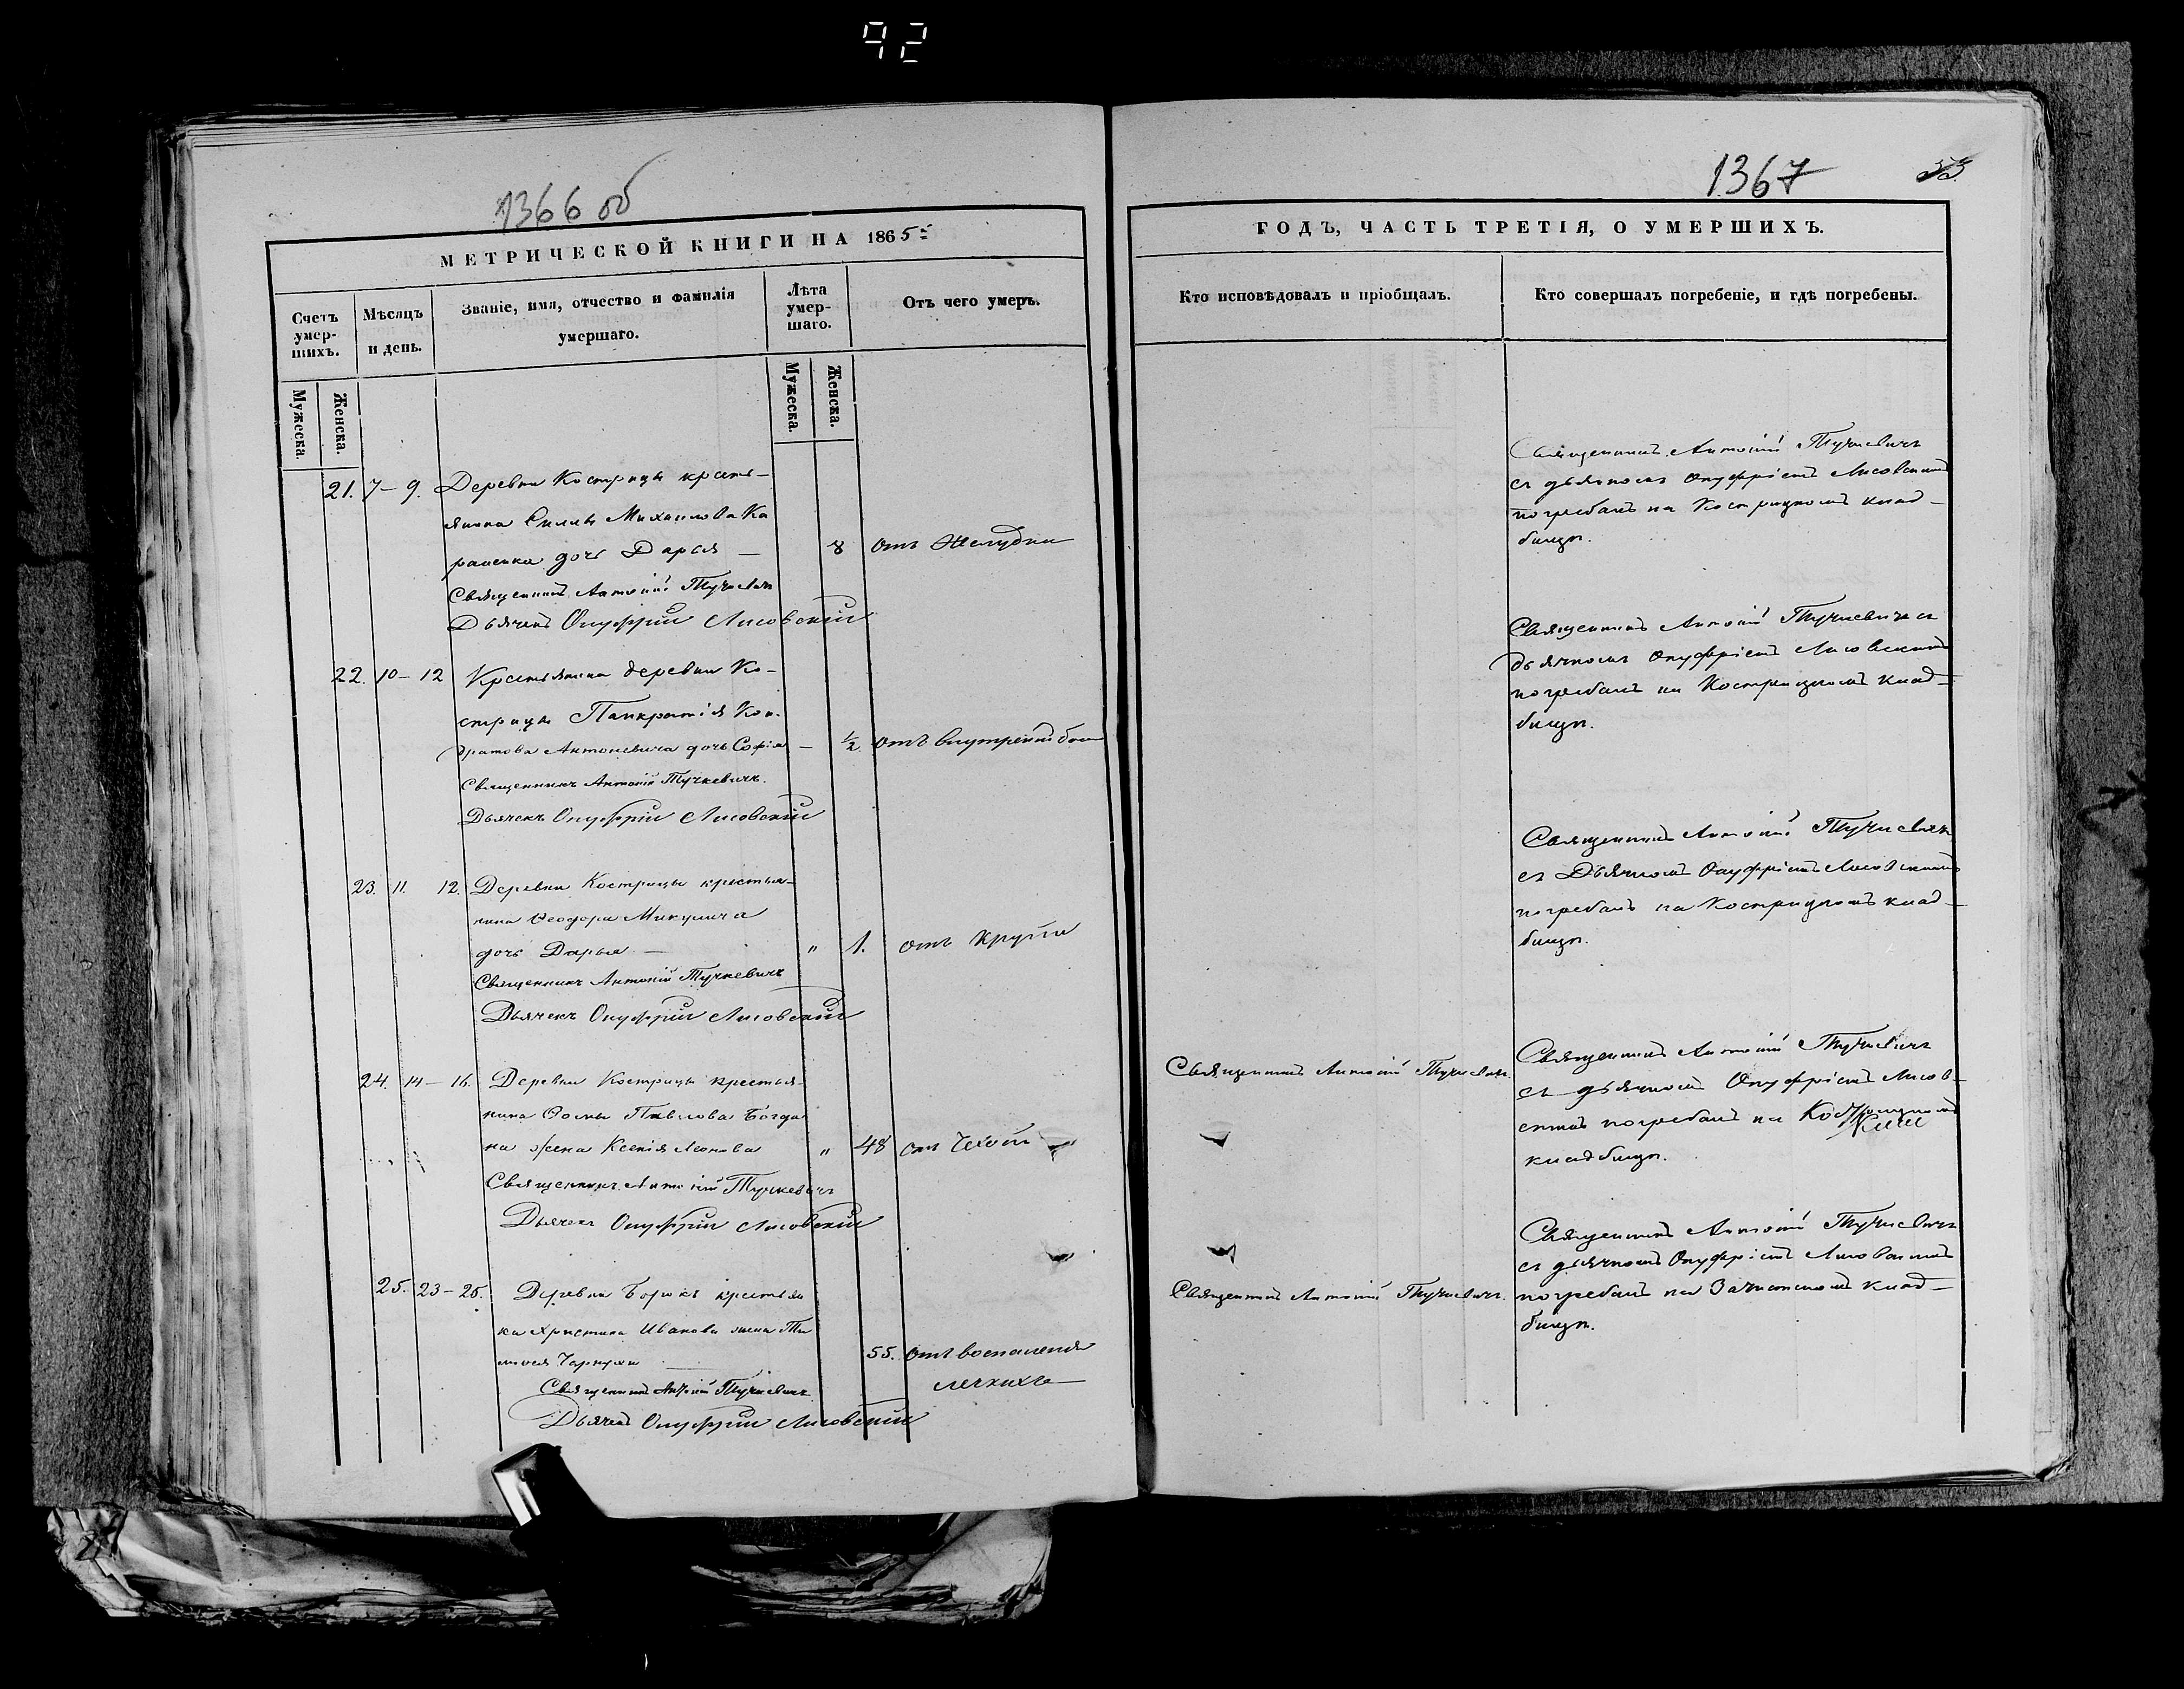 92
1366 об
МЕТРИЧЕСКОЙ КНИГИ НА 1865
Счетъ умер-шихъ.
Мѣсяцъ и день.
Званіе, имя, отчество и фамилія умершаго.
Лѣта умер-шаго.
Отъ чего умеръ.
Мужеска.
Женска.
Мужеска.
Женска.
21. 7-9. Деревни Кострицы кресть-
янина Михайлова Ка
дочь Дарья — 8 отъ желудки
Священникъ Антоній Тучкевичъ
Дьячекъ Онуфрій Лисовскій
22. 10-12 Крестьянина деревни Ко-
стрицы Панкратія Кон-
дратова Антоневича дочь Софія — 1/2 отъ внутренней
Священникъ Антоній Тучкевичъ.
Дьячекъ Онуфрій Лисовскій
23. 11. 12. Деревни Кострицы крестья-
нина Ѳеодора Микулича
дочь Дарья — " 1. отъ крупи
Священникъ Антоній Тучкевичъ
Дьячекъ Онуфрій Лисовскій
24. 14-16. Деревни Кострицы крестья-
нина Ѳомы Павлова Богда-
на жена Ксенія Леонова " 48 отъ чехоти
Священникъ Антоній Тучкевичъ
Дьячекъ Онуфрій Лисовскій
25. 23-25. Деревни крестьян
ка Христина Иванова жена Ти
55. отъ воспаленія
легкихъ
Священникъ Антоній Тучкевичъ
Дьячекъ Онуфрій Лисовскій
1367 33
ГОДЪ, ЧАСТЬ ТРЕТІЯ, О УМЕРШИХЪ.
Кто исповѣдовалъ и пріобщалъ.
Кто совершалъ погребеніе, и гдѣ погребены.
Священникъ Антоній Тучкевичъ
съ дьячкомъ Онуфріемъ Лисовскимъ
погребалъ на Кострицкомъ клад-
бищѣ.
Священникъ Антоній Тучкевичъ съ
дьячкомъ Онуфріемъ Лисовскимъ
погребалъ на Кострицкомъ клад-
бищѣ.
Священникъ Антоній Тучкевичъ
съ Дьячкомъ Онуфріемъ Лисовскимъ
погребалъ на Кострицкомъ клад-
бищѣ.
Священникъ Антоній Тучкевичъ.
Священникъ Антоній Тучкевичъ
съ дьячкомъ Онуфріемъ Лисов-
скимъ погребалъ на Кострицкомъ
кладбищѣ.
Священникъ Антоній Тучкевичъ.
Священникъ Антоній Тучкевичъ
съ дьячкомъ Онуфріемъ Лисовскимъ
погребалъ на Зачистскомъ клад-
бищѣ.